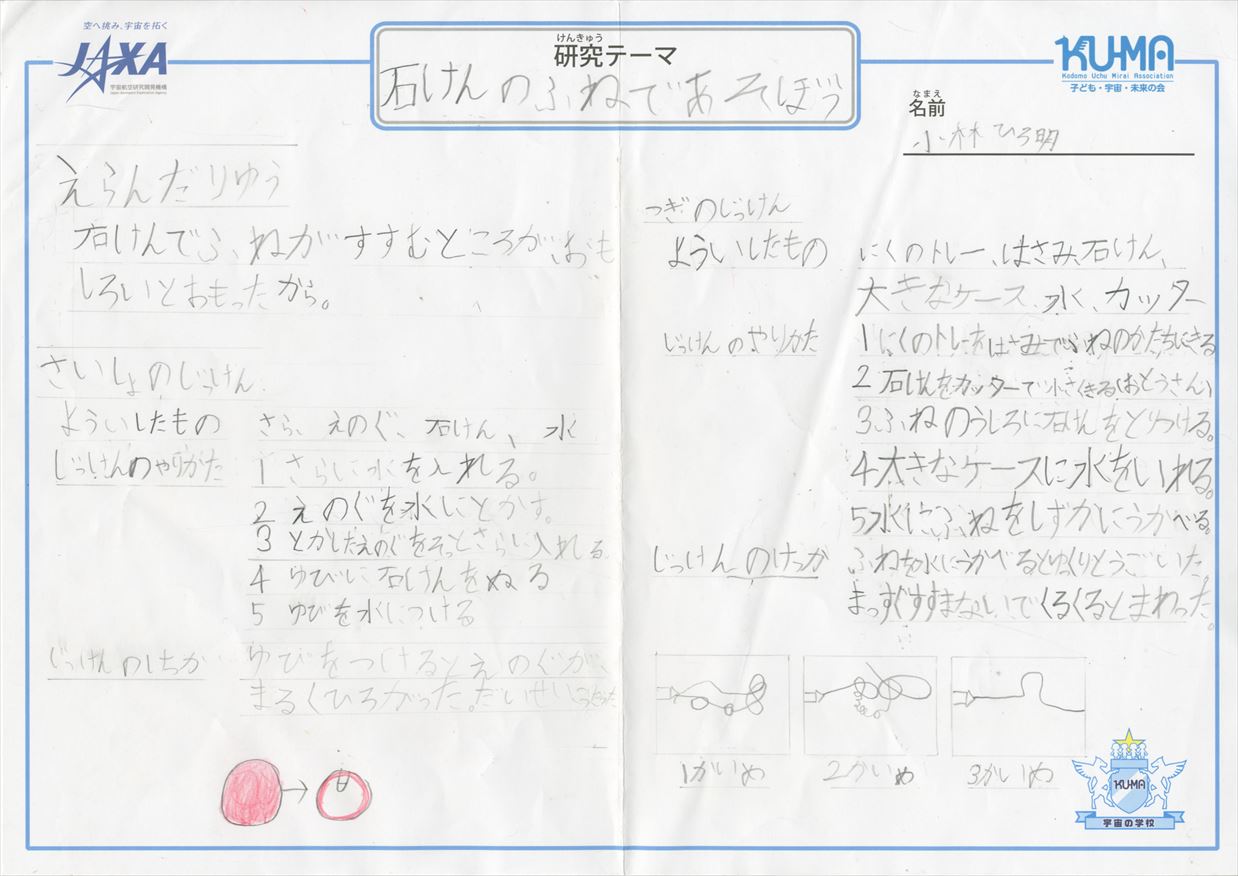 空へ挑み、宇宙を拓く
JAXA
宇宙航空研究開発機構
Japan Aerospace Exploration Agency
けんきゅう
研究テーマ
石けんのふねであそぼう
KU-MA
Kodomo Uchu Mirai Association
子ども・宇宙・未来の会
なまえ
名前
小林ひろ明
えらんだりゆう
石けんでふねがすすむところが、おも
しろいとおもったから。
さいしょのじっけん
よういしたもの
さら、えのぐ、石けん、水
じっけんのやりかた
1 さらに水を入れる。
2 えのぐを水にとかす。
3 とかしたえのぐをそっとさらに入れる
4 ゆびに石けんをぬる
5 ゆびを水につける
じっけんの
ゆびをつけるとえのぐが、
まるくひろがった。だいせいこうだった
つぎのじっけん
よういしたもの
にくのトレー、はさみ、石けん、
大きなケース、水、カッター
じっけんのやりかた
1 にくのトレーをはさみでふねのかたちにきる
2 石けんをカッターで小さくきる(おとうさん)
3.ふねのうしろに石けんをとりつける。
4 大きなケースに水をいれる。
5 水にふねをしずかにうかべる。
じっけんのけっか
ふねを水にうかべるとゆっくりとうごいた。
まっすぐすすまないでくるくるとまわった。
1かいめ
2かいめ
3かいめ
KU-MA
宇宙の学校